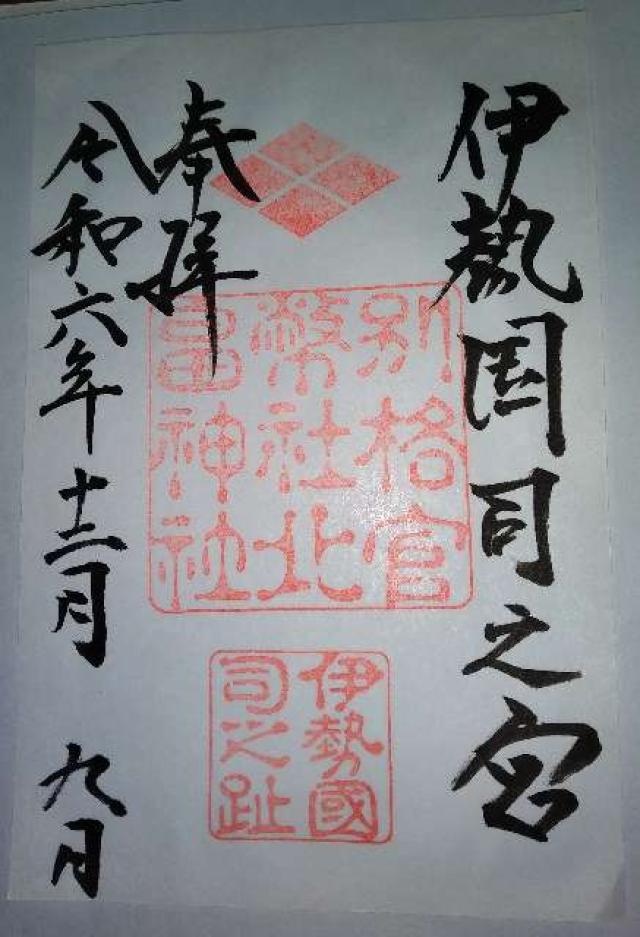 伊勢国司之宮
奉拝
令和六年十二月 九月
別格官
幣社北
畠神社
伊勢國
司之趾